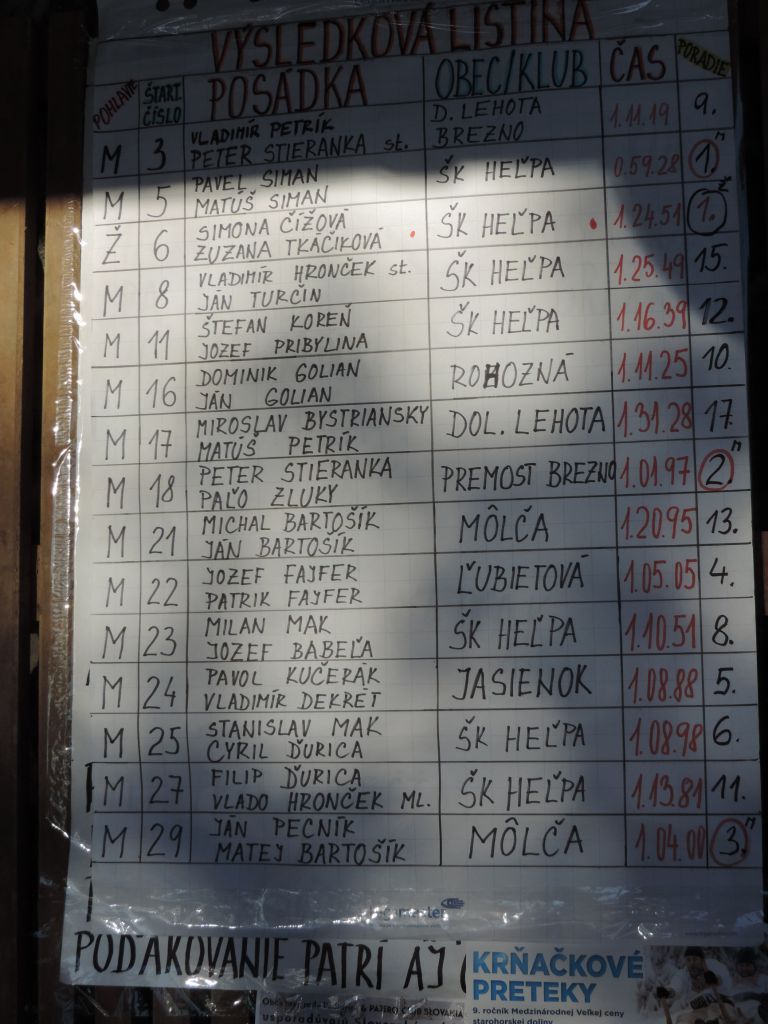 VÝSLEDKOVÁ LISTINA
POHLAVIE ŠTART. ČÍSLO POSÁDKA OBEC/KLUB ČAS PORADIE
M 3 VLADIMÍR PETRÍK D. LEHOTA 1.11.19 9.
PETER STIERANKA st. BREZNO
M 5 PAVEL SIMAN ŠK HEĽPA 0.59.28 1. M
MATÚŠ SIMAN
Ž 6 SIMONA ČÍŽOVÁ ŠK HEĽPA 1.24.51 1. Ž
ZUZANA TKÁČIKOVÁ
M 8 VLADIMÍR HRONČEK st. ŠK HEĽPA 1.25.49 15.
JÁN TURČIN
M 11 ŠTEFAN KOREŇ ŠK HEĽPA 1.16.39 12.
JOZEF PRIBYLINA
M 16 DOMINIK GOLIAN ROHOZNÁ 1.11.25 10.
JÁN GOLIAN
M 17 MIROSLAV BYSTRIANSKY DOL. LEHOTA 1.31.28 17.
MATÚŠ PETRÍK
M 18 PETER STIERANKA PREMOST BREZNO 1.01.97 2. M
PAĽO ZLUKY
M 21 MICHAL BARTOŠÍK MÔLČA 1.20.95 13.
JÁN BARTOŠÍK
M 22 JOZEF FAJFER ĽUBIETOVÁ 1.05.05 4.
PATRIK FAJFER
M 23 MILAN MAK ŠK HEĽPA 1.10.51 8.
JOZEF BABEĽA
M 24 PAVOL KUČERÁK JASIENOK 1.08.88 5.
VLADIMÍR DEKRÉT
M 25 STANISLAV MAK ŠK HEĽPA 1.08.98 6.
CYRIL ĎURICA
M 27 FILIP ĎURICA ŠK HEĽPA 1.13.81 11.
VLADO HRONČEK ML.
M 29 JÁN PECNÍK MÔLČA 1.04.00 3. M
MATEJ BARTOŠÍK
POĎAKOVANIE PATRÍ AJ
KRŇAČKOVÉ
PRETEKY
9. ročník Medzinárodnej Veľkej ceny
starohorskej doliny
& PAJERO CLUB SLOVAKIA
usporadúvajú